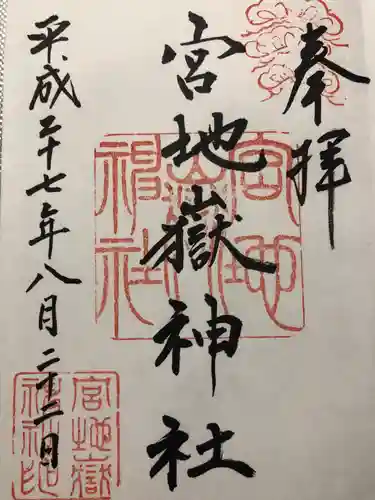 奉拝
宮地嶽神社
平成二十七年八月二十二日
宮地嶽神社